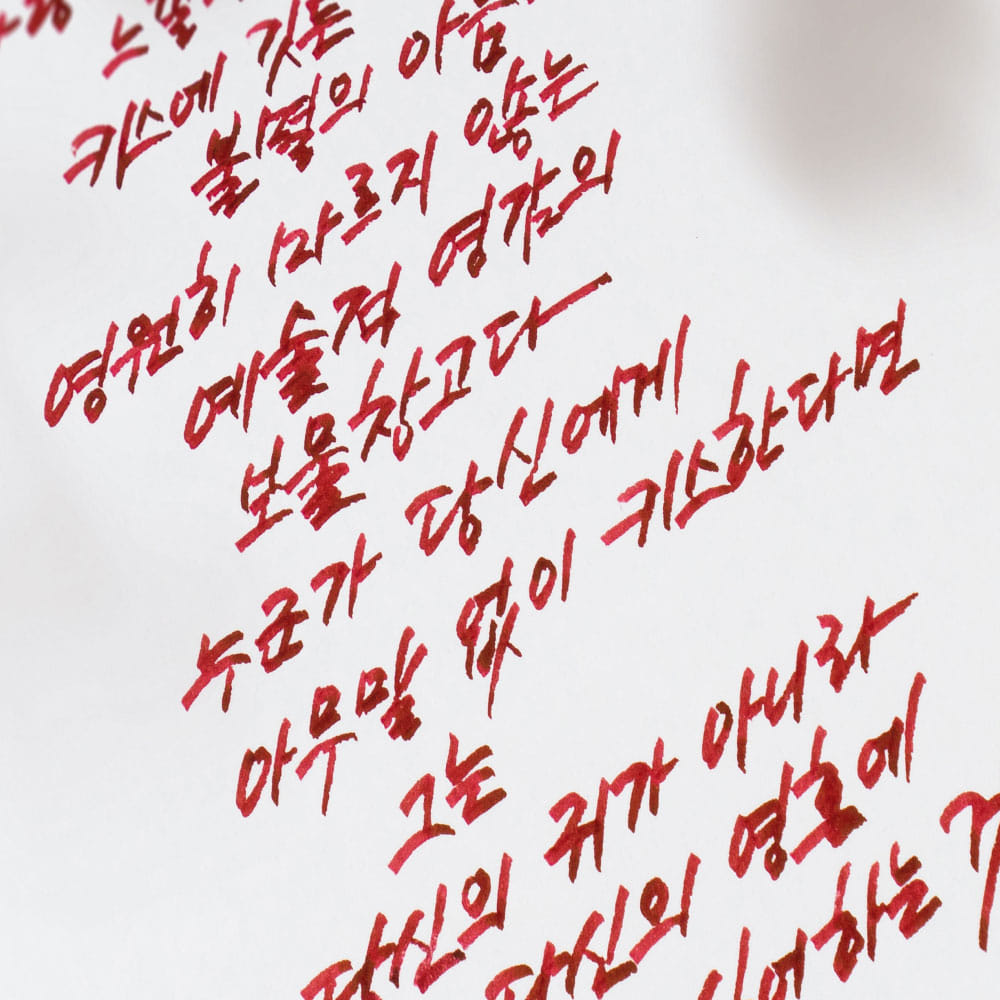 키스에 깃든
불멸의 아름
영원히 마르지 않는
예술적 영감의
보물창고다
누군가 당신에게
아무말 없이 키스한다면
그는
당신의 귀가 아니라
당신의 영혼에
하는